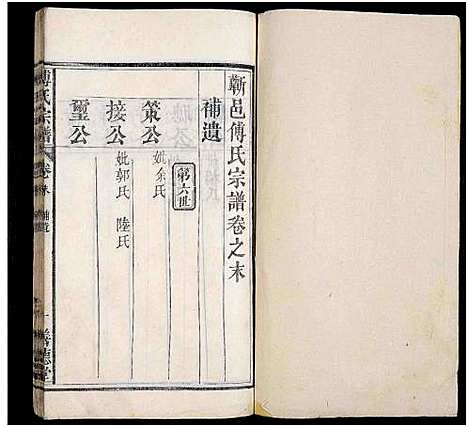 蘄邑傅氏宗譜卷之末
補遺
第六世
策公
妣余氏
接公
妣郭氏 陸氏
璽公
傅氏宗譜 卷末 補遺 一